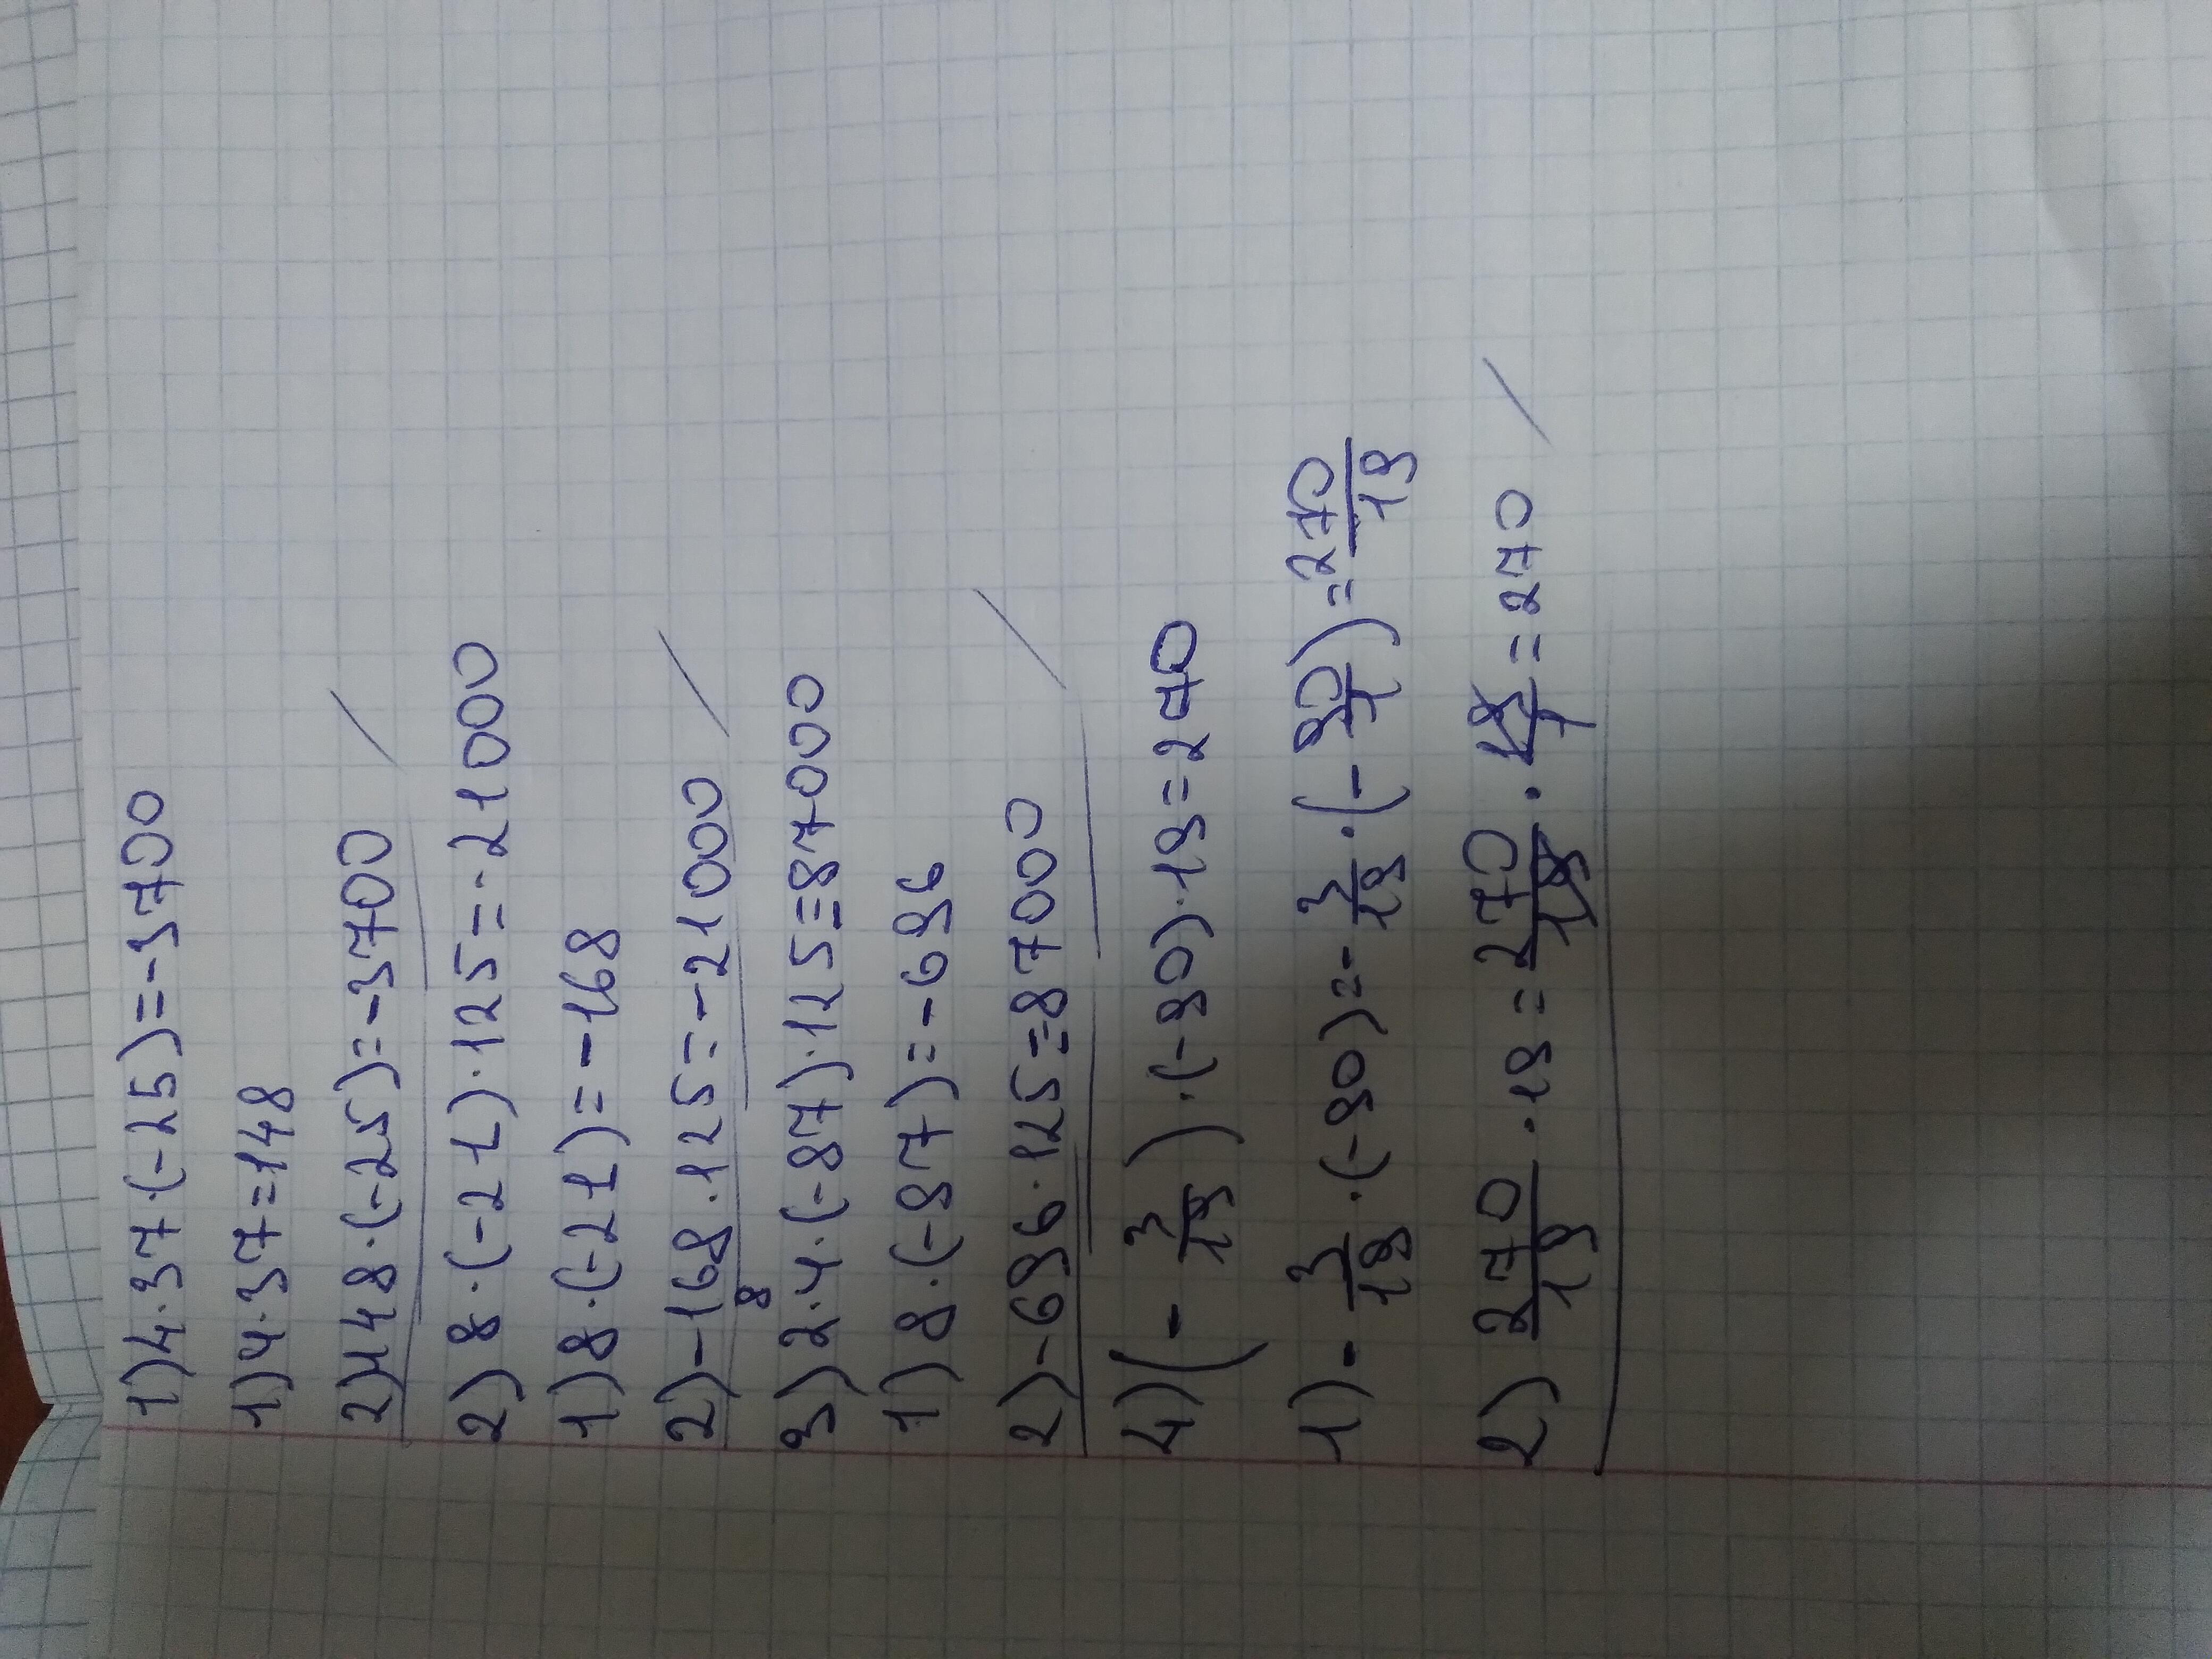 1) 4·37·(-25)=-3700
1) 4·37=148
2) 148·(-25)=-3700
2) 8·(-21)·125=-21000
1) 8·(-21)=-168
2) -168·125=-21000
8
3) 2·4·(-87)·125=87000
1) 8·(-87)=-696
2) -696·125=87000
4) (-3/19)·(-90)·19=270
1) -3/19·(-90)=-3/19·(-90/1)=270/19
2) 270/19·19=270/19·19/1=270